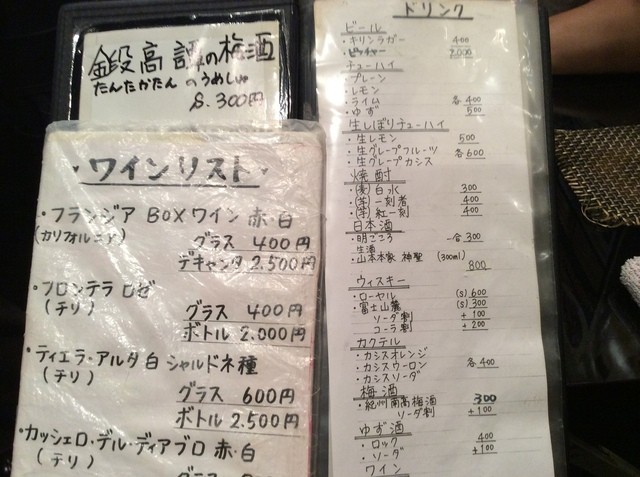 鍛高譚の梅酒
たんたかたん のうめしゅ
S.300円
・ワインリスト・
・フランジア BOXワイン 赤・白
(カリフォルニア) グラス 400円
デキャンタ 2.500円
・フロンテラ ロゼ
(チリ) グラス 400円
ボトル 2.000円
・ティエラ・アルタ 白 シャルドネ種
(チリ)
グラス 600円
ボトル 2.500円
・カッシェロ・デル・ディアブロ 赤・白
(チリ)
ドリンク
ビール
・キリンラガー 400
・ピッチャー 2,000
チューハイ
・プレーン
・レモン
・ライム 各400
・ゆず 500
生しぼりチューハイ
・生レモン 500
・生グレープフルーツ 各600
・生グレープカシス
焼酎
・(麦)白水 300
・(芋)一刻者 400
・(芋)紅一刻 400
日本酒
・明ごころ 一合300
生酒
・山本本家 神聖 (300ml)
800
ウィスキー
・ローヤル (S)600
・富士山麓 (S)300
ソーダ割 +100
コーラ割 +200
カクテル
・カシスオレンジ
・カシスウーロン 各400
・カシスソーダ
梅酒
・紀州南高梅酒 300
ソーダ割 +100
ゆず酒
・ロック 400
・ソーダ +100
ワイン